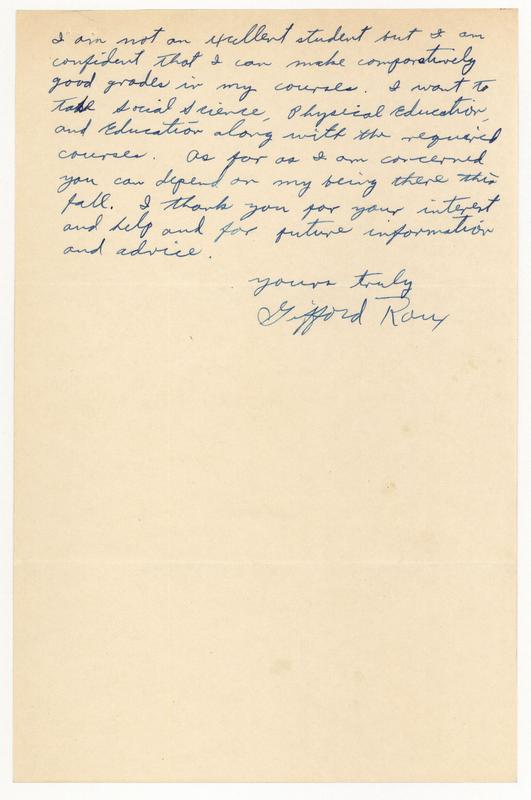 I am not an excellent student but I am
confident that I can make comparatively
good grades in my courses. I want to
take Social Science, Physical Education,
and Education along with the required
courses. As far as I am concerned
you can depend on my being there this
fall. I thank you for your interest
and help and for future information
and advice.
yours truly
Gifford Roux